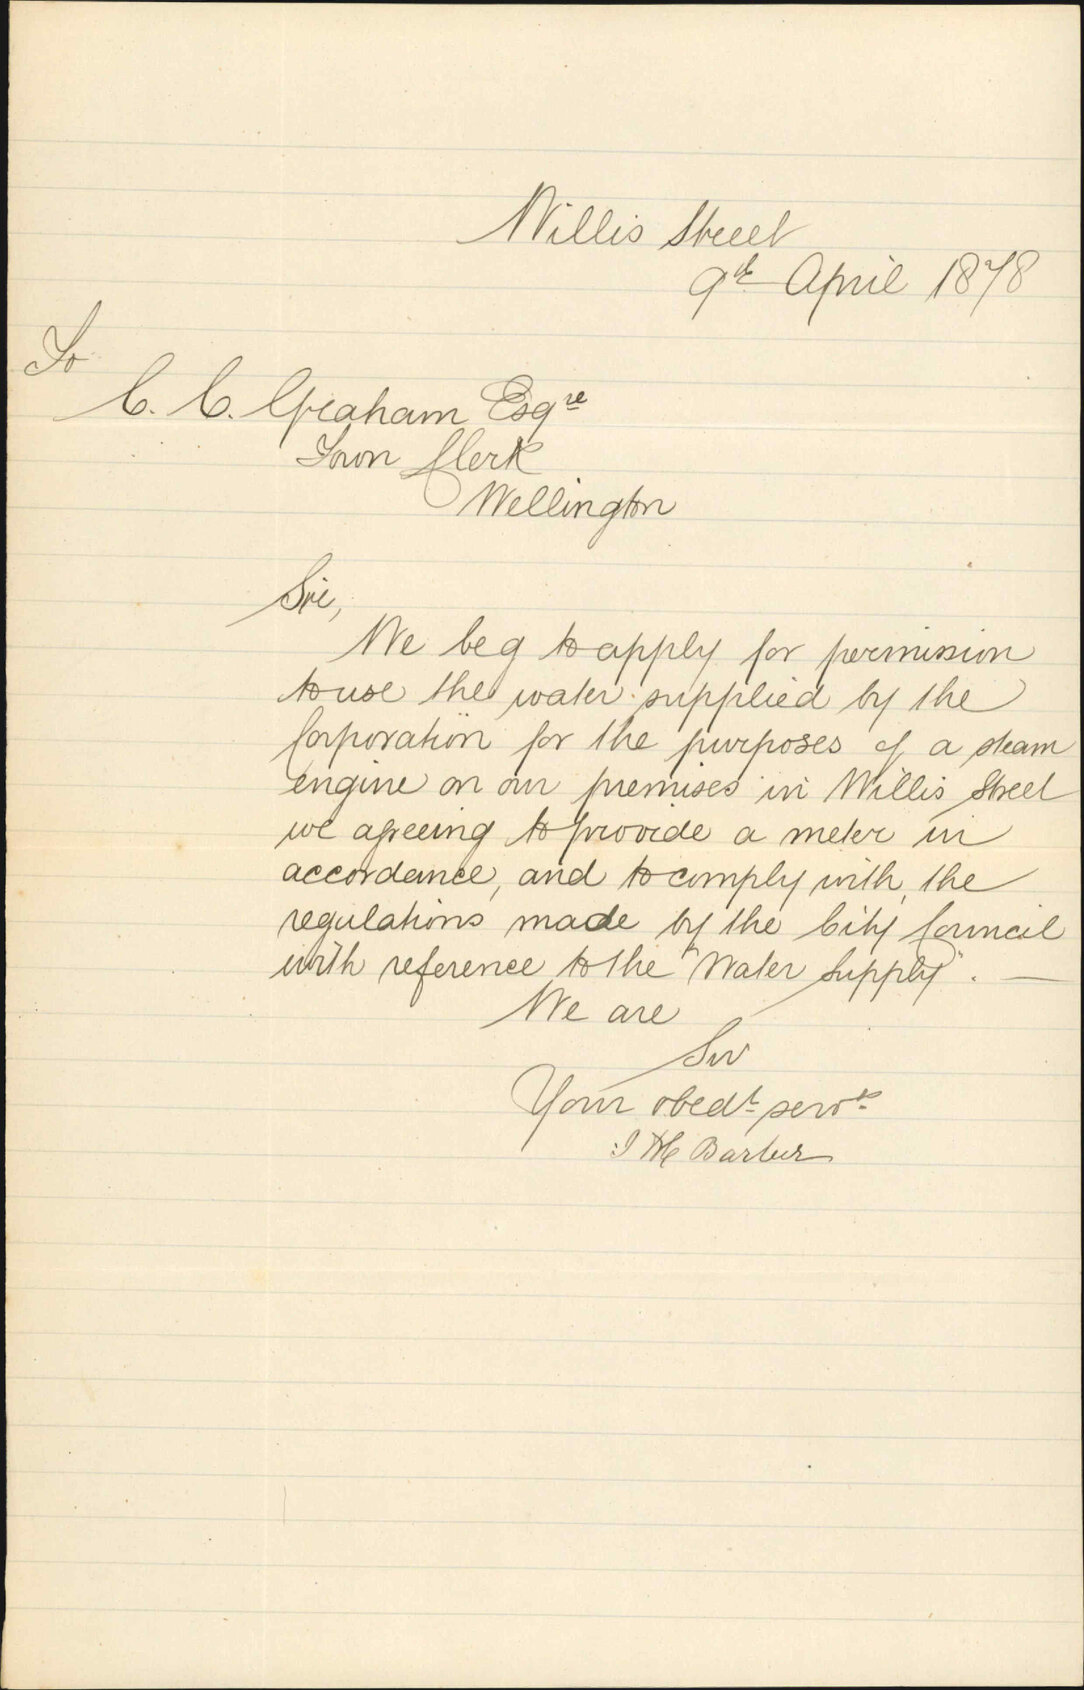 Willis Street
9th April 1878
To
C. C. Graham Esqre
Town Clerk
Wellington
Sir,
We beg to apply for permission
to use the water supplied by the
Corporation for the purposes of a steam
engine on our premises in Willis Street
we agreeing to provide a meter in
accordance, and to comply with, the
regulations made by the City Council
with reference to the "Water Supply". —
We are
Sir
Your obedt servts
Barber